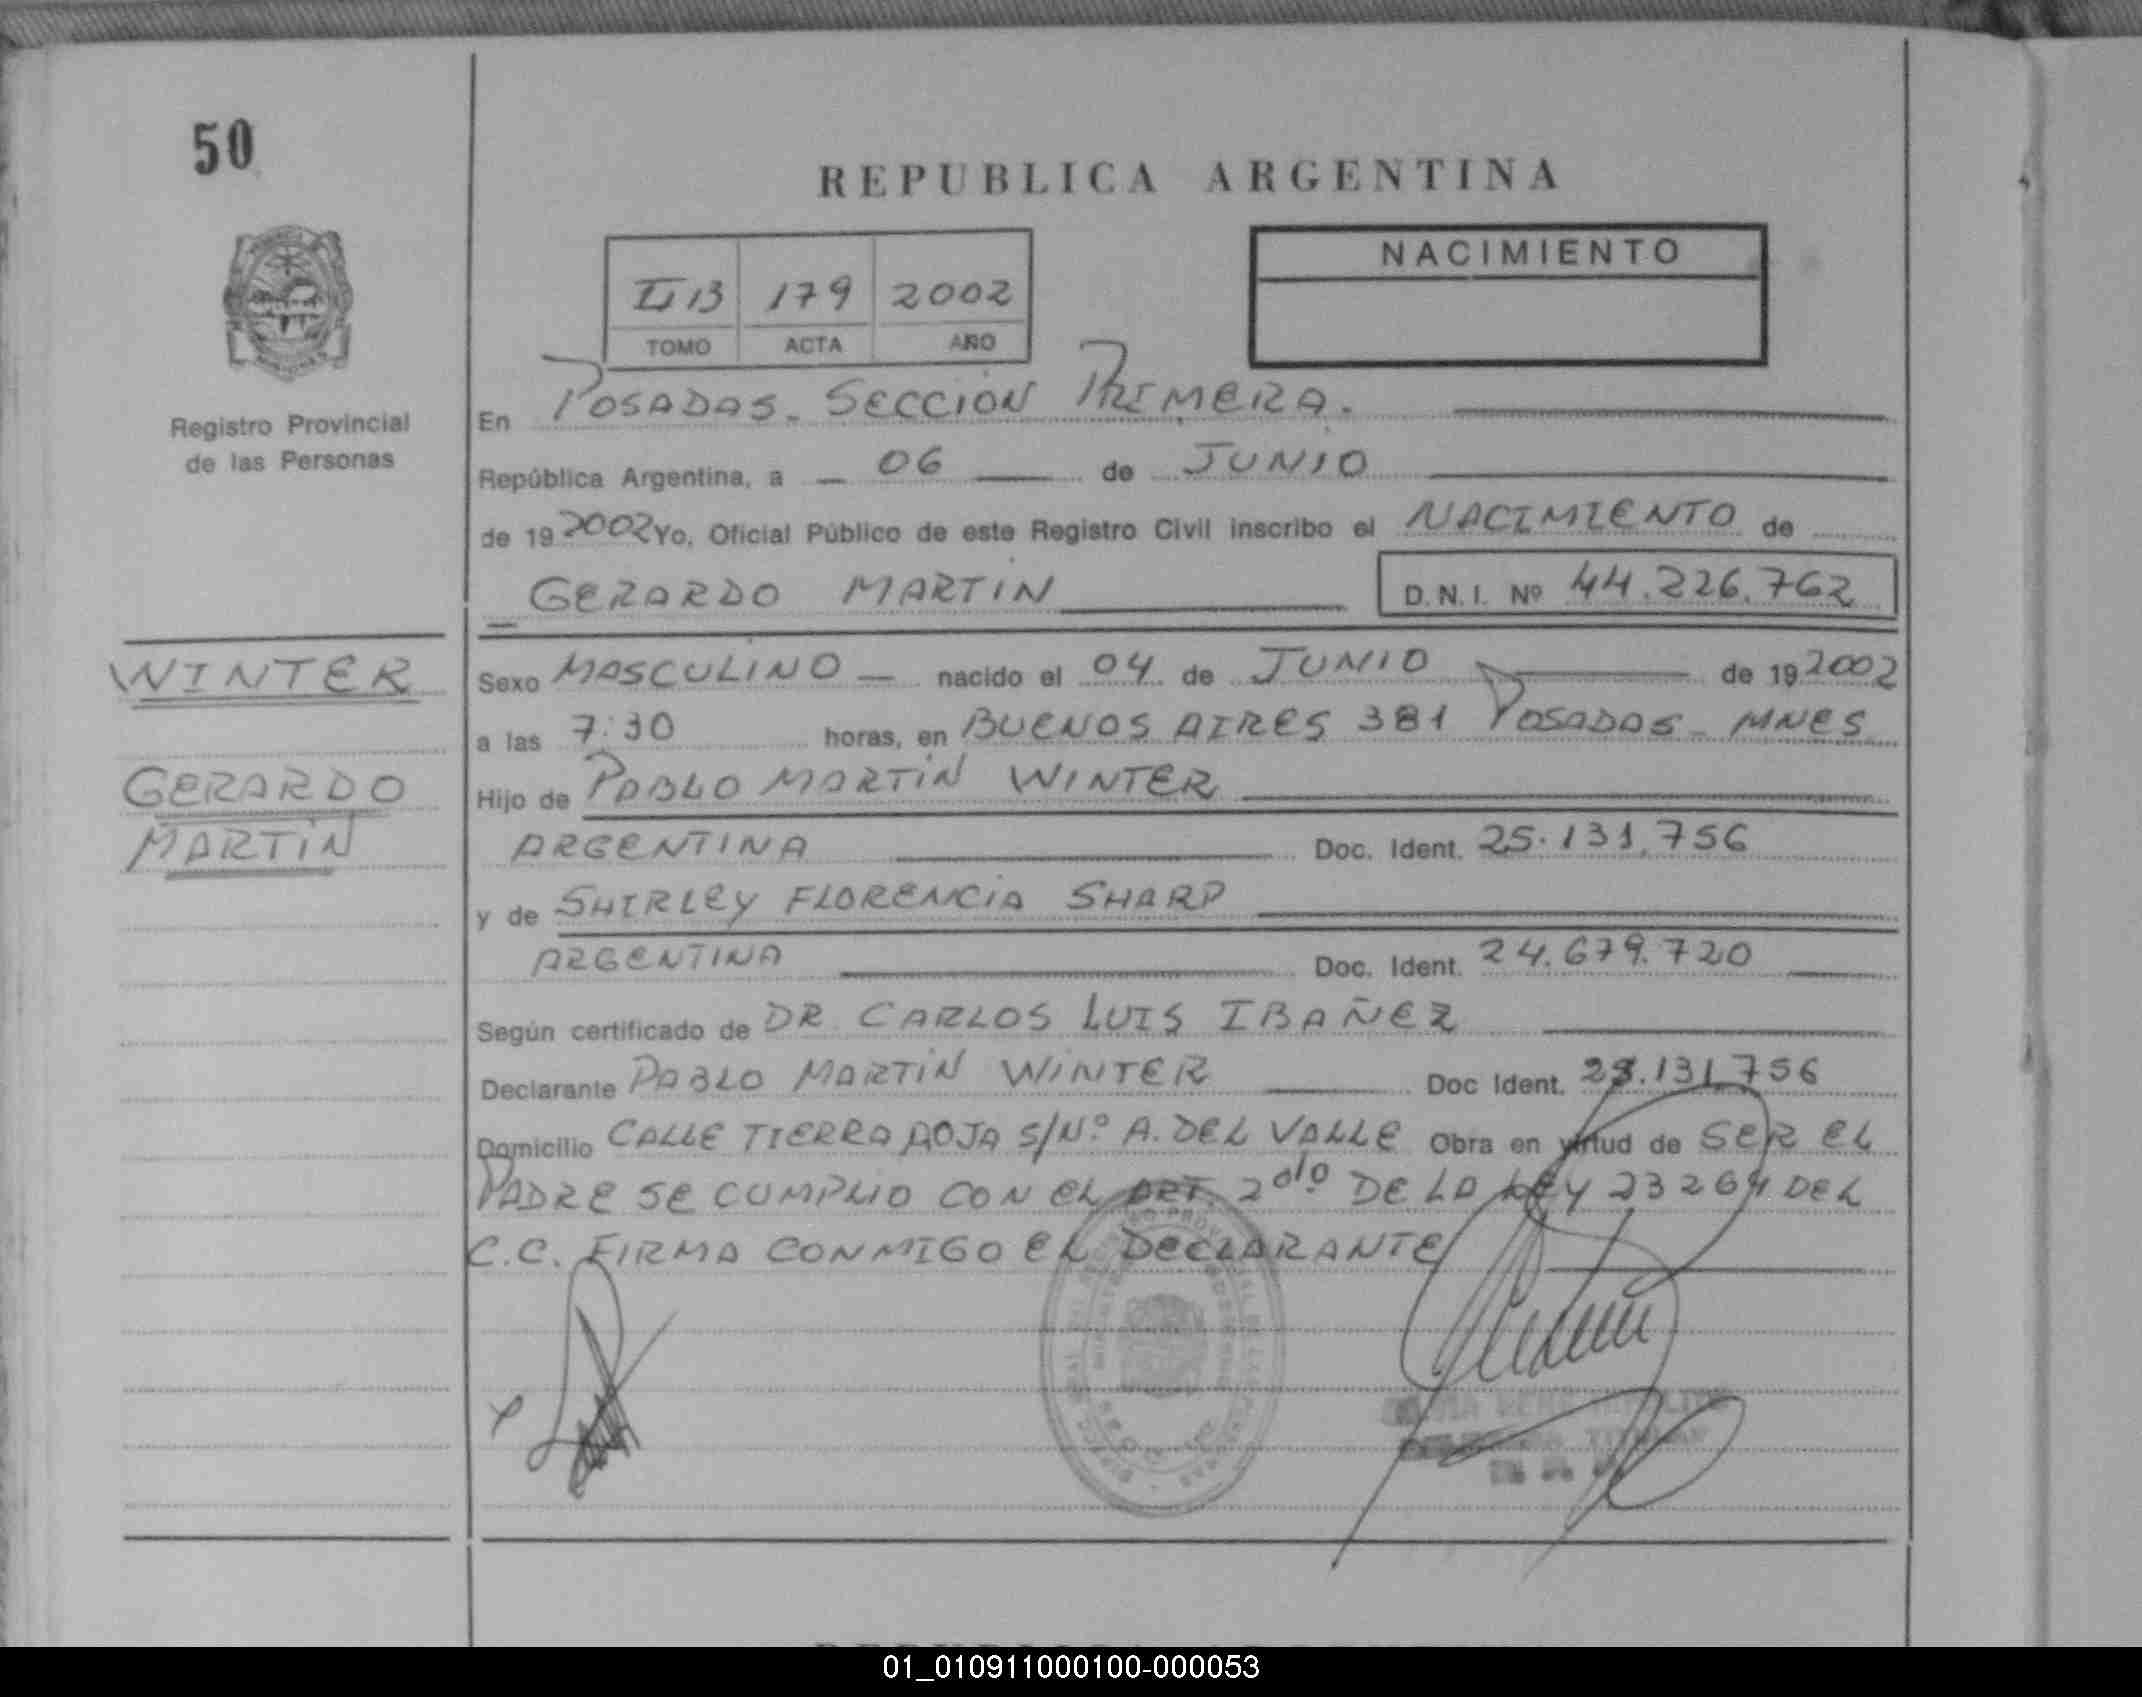 50
REPUBLICA ARGENTINA
NACIMIENTO
II B 179 2002
TOMO ACTA AÑO
Registro Provincial
de las Personas
En POSADAS - SECCION PRIMERA.
República Argentina, a 06 de JUNIO
de 19 2002 Yo, Oficial Público de este Registro Civil inscribo el NACIMIENTO de
GERARDO MARTIN D.N.I. Nº 44.226.762
WINTER
GERARDO
MARTIN
Sexo MASCULINO nacido el 04 de JUNIO de 19 2002
a las 7:30 horas, en BUENOS AIRES 381 POSADAS - MNES
Hijo de PABLO MARTIN WINTER
ARGENTINA Doc. Ident. 25.131.756
y de SHIRLEY FLORENCIA SHARP
ARGENTINA Doc. Ident. 24.679.720
Según certificado de DR CARLOS LUIS IBAÑEZ
Declarante PABLO MARTIN WINTER Doc Ident. 25.131.756
Domicilio CALLE TIERRA ROJA S/Nº A. DEL VALLE Obra en virtud de SER EL
PADRE SE CUMPLIO CON EL ART 2do DE LA LEY 23264 DEL
C.C. FIRMA CONMIGO EL DECLARANTE
01_010911000100-000053